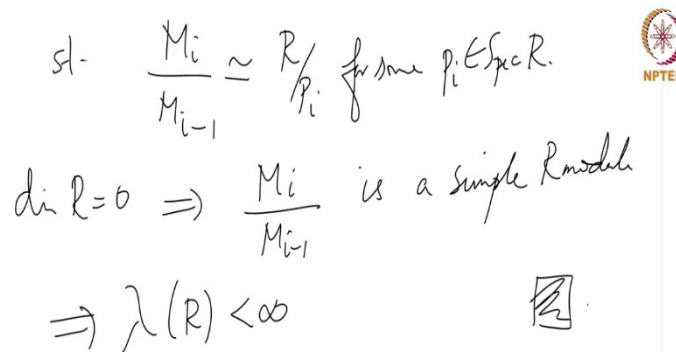 st. M_i / M_{i-1} ≃ R/p_i for some p_i ∈ Spec R.
NPTEL
dim R = 0 ⇒ M_i / M_{i-1} is a simple R module
⇒ λ(R) < ∞